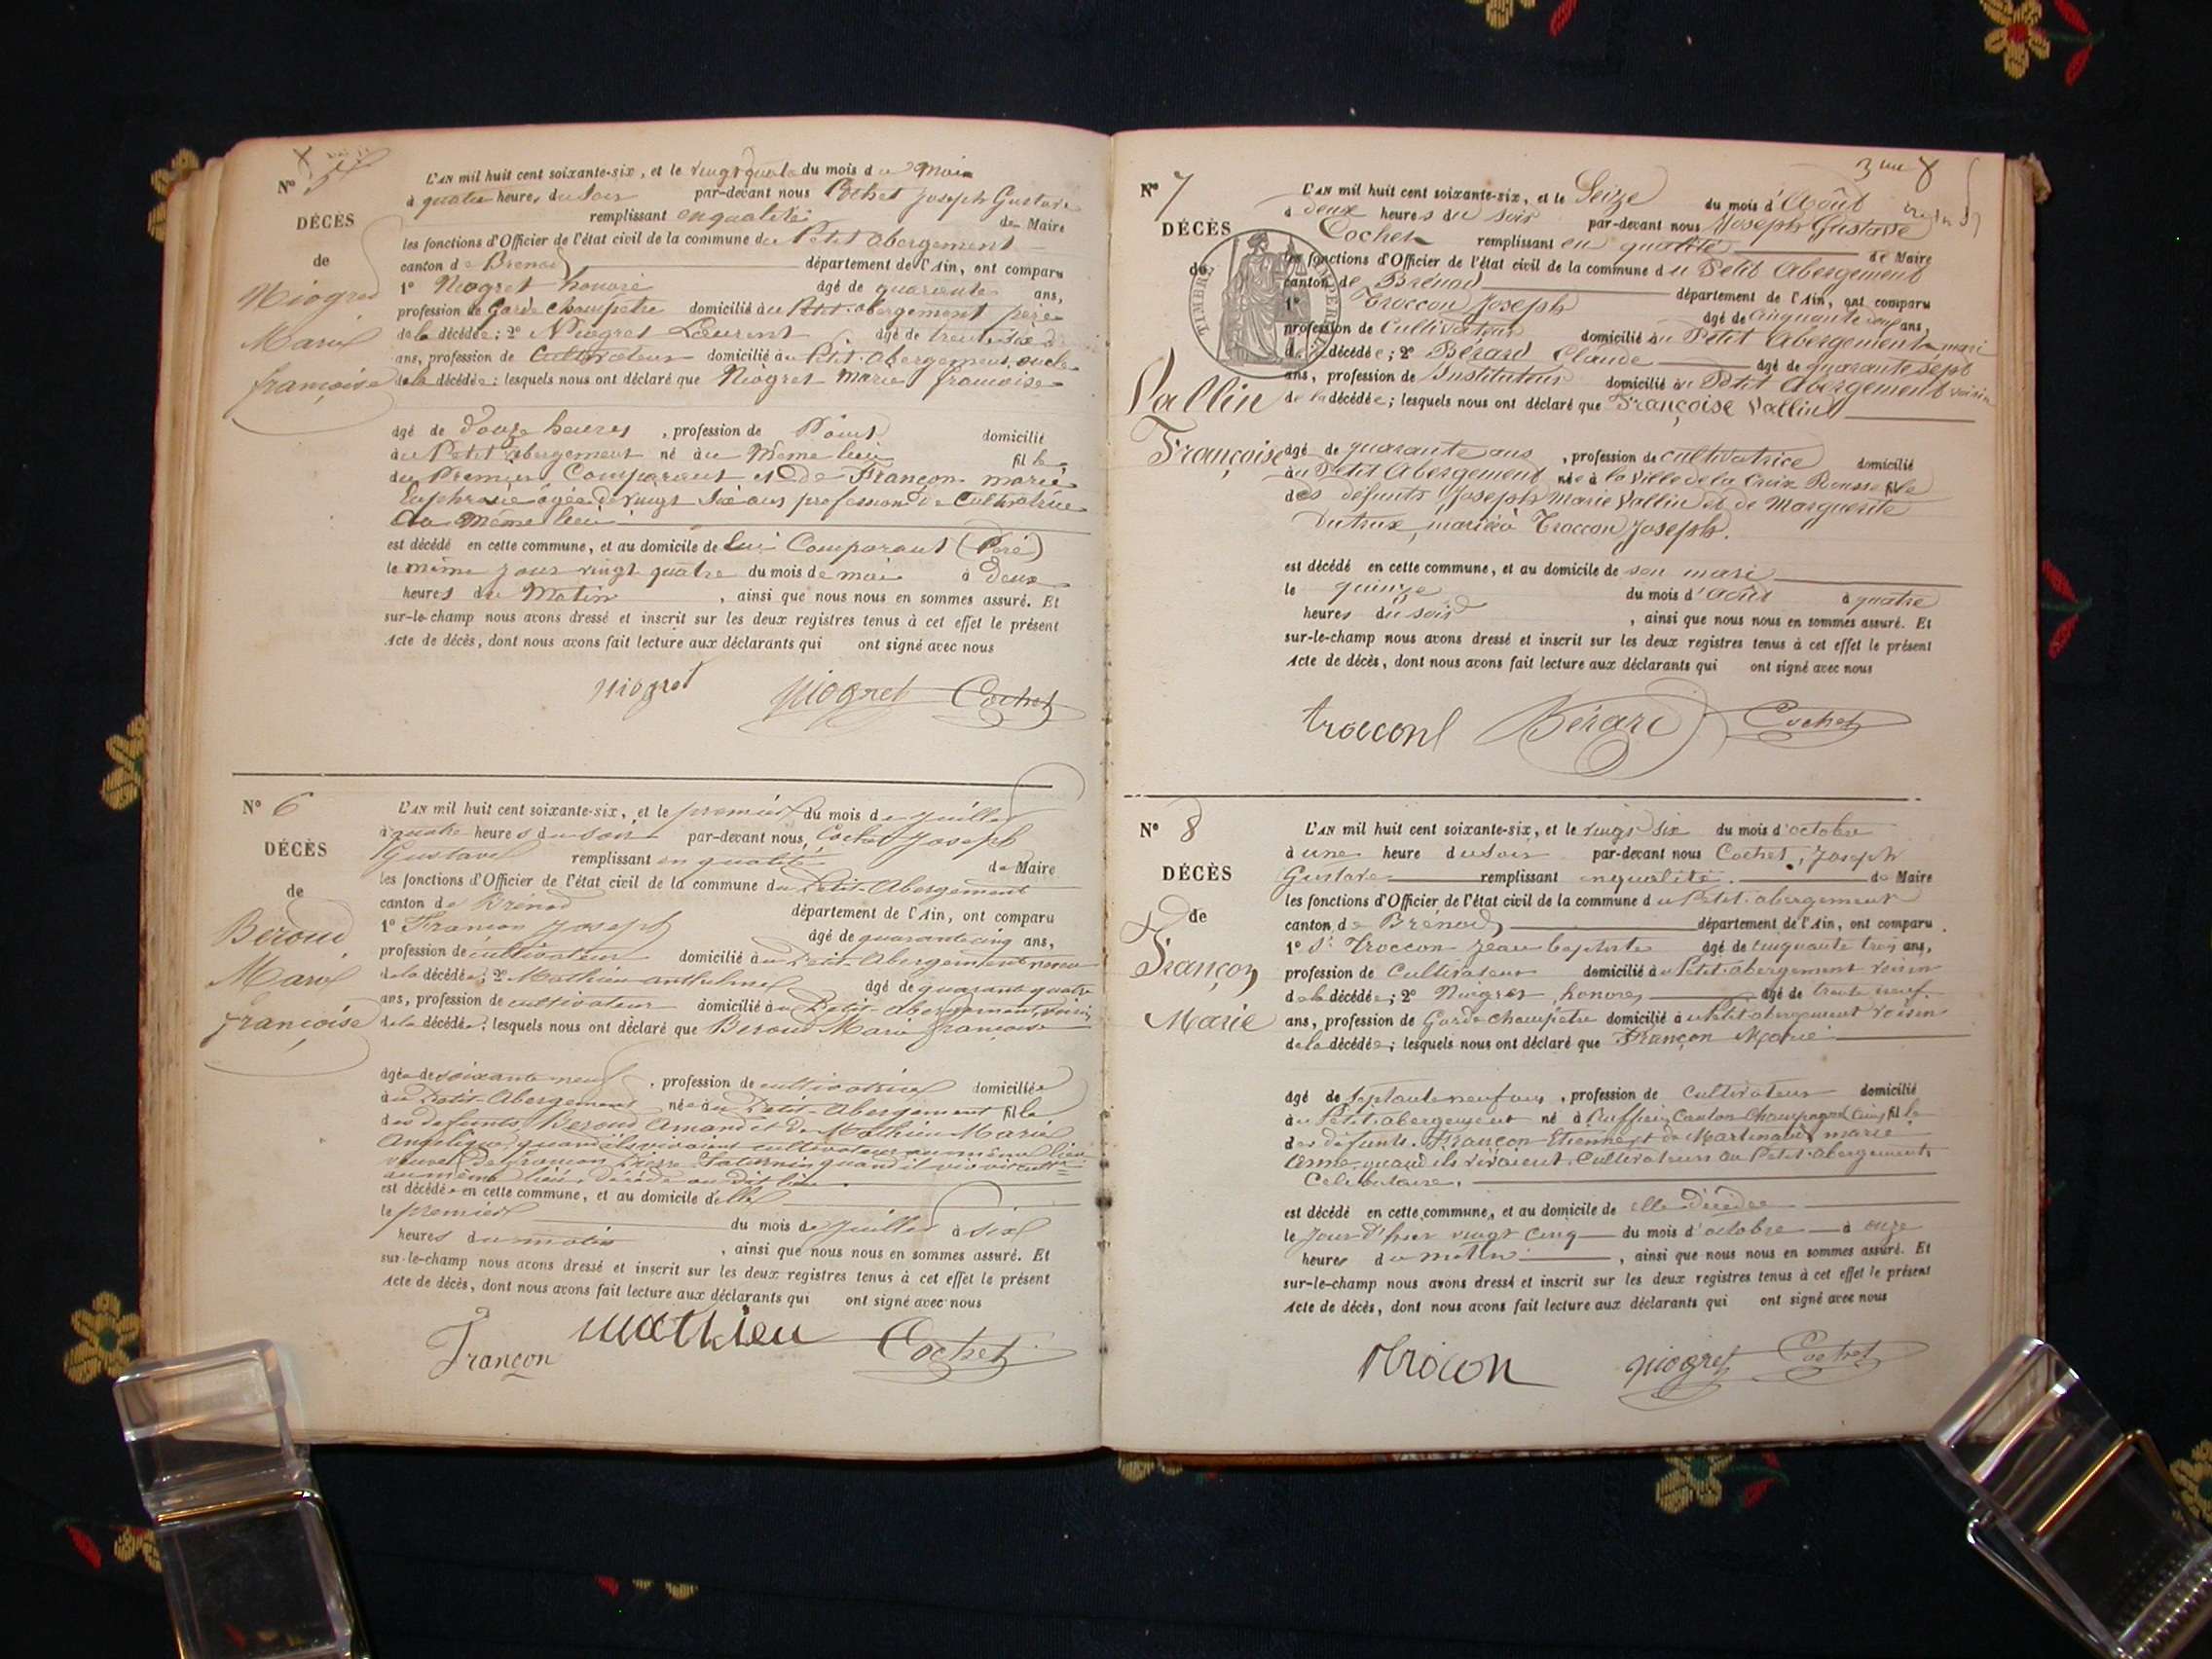 Nº 5
DÉCÈS
de
Niogret
Marie
françoise
L'AN mil huit cent soixante-six, et le vingt quatre du mois de Mai
à quatre heures du Soir par-devant nous Cochet Joseph Gustave
remplissant en qualité de Maire
les fonctions d'Officier de l'état civil de la commune du Petit abergement
canton de Brenod département de l'Ain, ont comparu
1º Niogret honoré âgé de quarante ans,
profession de Garde Champêtre domicilié au Petit-abergement père
de la décédée; 2º Niogret Laurent âgé de trente six
ans, profession de Cultivateur domicilié au Petit-Abergement, oncle
de la décédée; lesquels nous ont déclaré que Niogret Marie françoise
âgé de douze heures, profession de domicilié
au Petit abergement né au Même lieu fille
du Premier Comparant et de Françon marie
Euphrasie âgée de vingt six ans profession de Cultivatrice
du Même lieu
est décédé en cette commune, et au domicile de lui Comparant (Père)
le même jour vingt quatre du mois de mai à deux
heures du Matin, ainsi que nous nous en sommes assuré. Et
sur-le-champ nous avons dressé et inscrit sur les deux registres tenus à cet effet le présent
Acte de décès, dont nous avons fait lecture aux déclarants qui ont signé avec nous
niogret niogret Cochet
Nº 6
DÉCÈS
de
Beroud
Marie
françoise
L'AN mil huit cent soixante-six, et le premier du mois de juillet
à quatre heures du soir par-devant nous, Cochet Joseph
Gustave remplissant en qualité de Maire
les fonctions d'Officier de l'état civil de la commune du Petit-Abergement
canton de Brénod département de l'Ain, ont comparu
1º Françon Joseph âgé de quarante cinq ans,
profession de cultivateur domicilié au Petit-Abergement neveu
de la décédée; 2º Mathieu anthelme âgé de quarante quatre
ans, profession de cultivateur domicilié au Petit-abergement, voisin
de la décédée; lesquels nous ont déclaré que Beroud Marie françoise
âgée de soixante neuf, profession de cultivatrice domiciliée
au Petit-Abergement née au Petit-Abergement fille
des defunts Beroud Amand et de Mathieu Marie
Angelique quand ils vivaient cultivateurs au même lieu
veuve de françon Pierre Saturnin quand il vivait cultr
au même lieu, décédé au dit lieu
est décédée en cette commune, et au domicile d'elle
le premier du mois de juillet à six
heures du matin, ainsi que nous nous en sommes assuré. Et
sur-le-champ nous avons dressé et inscrit sur les deux registres tenus à cet effet le présent
Acte de décès, dont nous avons fait lecture aux déclarants qui ont signé avec nous
Françon mathieu Cochet
3me 8
Nº 7
DÉCÈS
de
TIMBRE IMPERIAL
Vallin
Françoise
L'AN mil huit cent soixante-six, et le Seize du mois d'Août
à deux heures du soir par-devant nous Joseph Gustave
Cochet remplissant en qualité de Maire
les fonctions d'Officier de l'état civil de la commune du Petit Abergement
canton de Brénod département de l'Ain, ont comparu
1º Troccon Joseph âgé de cinquante deux ans,
profession de Cultivateur domicilié au Petit Abergement mari
de la décédée; 2º Bérard Claude âgé de quarante sept
ans, profession de Instituteur domicilié au Petit Abergement voisin
de la décédée; lesquels nous ont déclaré que Françoise Vallin
âgé de quarante ans, profession de cultivatrice domicilié
au Petit Abergement née à la Ville de la Croix Rousse fille
des défunts Joseph Marie Vallin et de Marguerite
Dutrux, mariée à Troccon Joseph.
est décédé en cette commune, et au domicile de son mari
le quinze du mois d'Août à quatre
heures du soir, ainsi que nous nous en sommes assuré. Et
sur-le-champ nous avons dressé et inscrit sur les deux registres tenus à cet effet le présent
Acte de décès, dont nous avons fait lecture aux déclarants qui ont signé avec nous
troccon Bérard Cochet
Nº 8
DÉCÈS
de
Françon
Marie
L'AN mil huit cent soixante-six, et le vingt six du mois d'octobre
à une heure du Soir par-devant nous Cochet, Joseph
Gustave remplissant en qualité de Maire
les fonctions d'Officier de l'état civil de la commune du Petit-abergement
canton de Brénod département de l'Ain, ont comparu
1º Sr Troccon Jean baptiste âgé de cinquante trois ans,
profession de Cultivateur domicilié au Petit-abergement voisin
de la décédée; 2º Niogret honoré âgé de trente neuf
ans, profession de Garde champêtre domicilié au Petit abergement voisin
de la décédée; lesquels nous ont déclaré que Françon Marie
âgé de Septante neuf ans, profession de Cultivateur domicilié
au Petit abergement né à Ruffieu Canton Champagne (ain) fille
des défunts Françon Etienne et de Martinand marie
Anne quand ils vivaient Cultivateurs au Petit-abergement
Celibataire.
est décédé en cette commune, et au domicile de elle décédée
le Jour d'hier vingt cinq du mois d'octobre à onze
heures du matin, ainsi que nous nous en sommes assuré. Et
sur-le-champ nous avons dressé et inscrit sur les deux registres tenus à cet effet le présent
Acte de décès, dont nous avons fait lecture aux déclarants qui ont signé avec nous
niogret Cochet